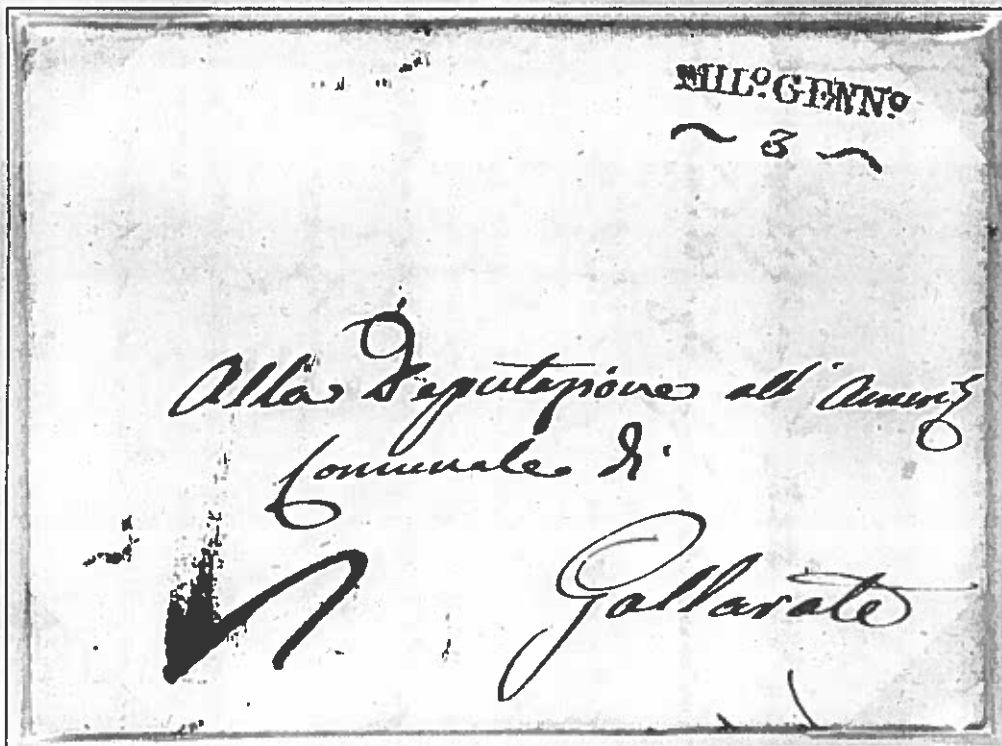 MILº GENNº
~ 3 ~
Alla Deputazione all' Ammz
Comunale di
Gallarate